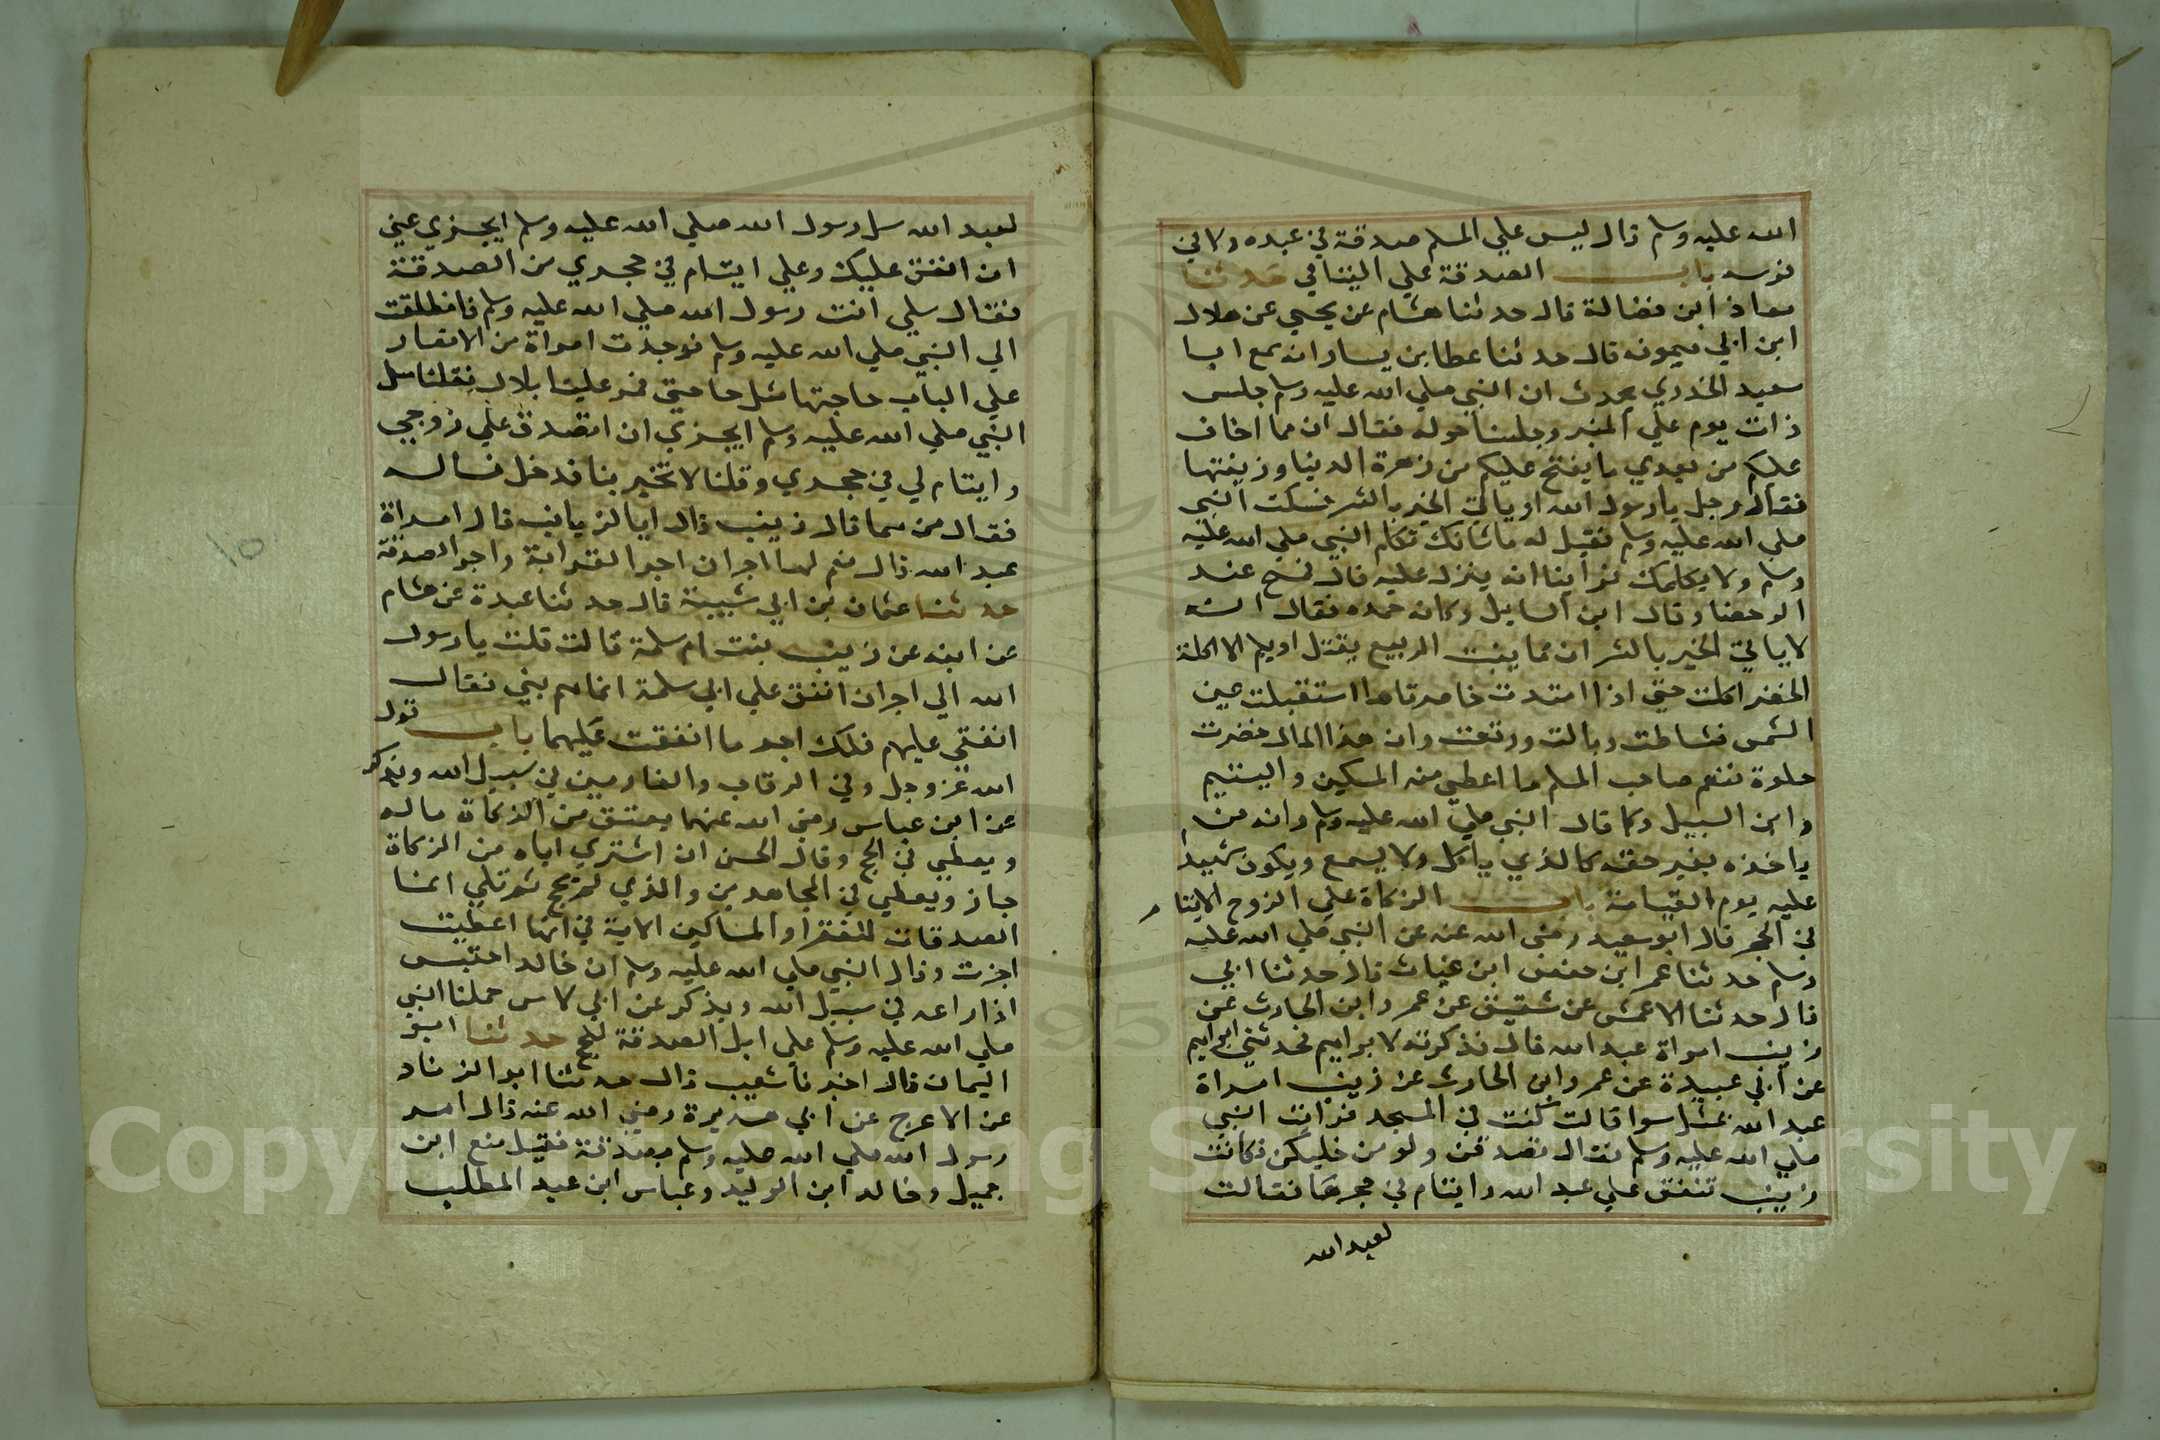 الله عليه وسلم قال ليس علي المسلم صدقة في عبده ولا في
فرسه باب الصدقة علي اليتامي حدثنا
معاذ ابن فضالة قال حدثنا هشام عن يحيي عن هلال
ابن ابي ميمونه قال حدثنا عطا بن يسار انه سمع ابا
سعيد الخدري يحدث ان النبي صلي الله عليه وسلم جلس
ذات يوم علي المنبر وجلسنا حوله فقال ان مما اخاف
عليكم من بعدي ما يفتح عليكم من زهرة الدنيا وزينتها
فقال رجل يا رسول الله او ياتي الخير بالشر فسكت النبي
صلي الله عليه وسلم فقيل له ما شانك تكلم النبي صلي الله عليه
وسلم ولا يكلمك فراينا انه ينزل عليه قال فمسح عنه
الرحضا وقال اين السايل وكانه حمده فقال انه
لا ياتي الخير بالشر ان مما ينبت الربيع يقتل او يلم الا اكلة
الخضر اكلت حتي اذا امتدت خاصرتاها استقبلت عين
الشمس فثلطت وبالت ورتعت وان هذا المال خضرت
حلوة فنعم صاحب المسلم ما اعطي منه المسكين واليتيم
وابن السبيل وكما قال النبي صلي الله عليه وسلم وانه من
ياخذه بغير حقه كالذي ياكل ولا يشبع ويكون شهيدا
عليه يوم القيامة باب الزكاة علي الزوج والايتام
في الحجر قاله ابو سعيد رضي الله عنه عن النبي صلي الله عليه
وسلم حدثنا عمر ابن حفص ابن غياث قال حدثنا ابي
قال حدثنا الاعمش عن شقيق عن عمرو ابن الحارث عن
زينب امراة عبد الله قال فذكرته لابراهيم فحدثني ابراهيم
عن ابي عبيدة عن عمرو ابن الحارث عن زينب امراة
عبد الله بمثله سوا قالت كنت في المسجد فرايت النبي
صلي الله عليه وسلم فقال تصدقن ولو من حليكن وكانت
زينب تنفق علي عبد الله وايتام في حجرها فقالت
لعبد الله
لعبد الله سل رسول الله صلي الله عليه وسلم ايجزي عني
ان انفق عليك وعلي ايتام في حجري من الصدقة
فقال سلي انت رسول الله صلي الله عليه وسلم فانطلقت
الي النبي صلي الله عليه وسلم فوجدت امراة من الانصار
علي الباب حاجتها مثل حاجتي فمر علينا بلال فقلنا سل
النبي صلي الله عليه وسلم ايجزي ان اتصدق علي زوجي
وايتام لي في حجري وقلنا لا تخبر بنا فدخل فساله
فقال من هما قال زينب قال اي الزيانب قال امراة
عبد الله قال نعم لها اجران اجر القرابة واجر الصدقة
حدثنا عثمان بن ابي شيبة قال حدثنا عبدة عن هشام
عن ابيه عن زينب بنت ام سلمة قالت قلت يا رسول
الله الي اجران انفق علي ابي سلمة انما هم بني فقال
انفقي عليهم فلك اجر ما انفقت عليهما باب قول
الله عز وجل وفي الرقاب والغارمين في سبيل الله ويذكر
عن ابن عباس رضي الله عنهما يعتق من الزكاة ماله
ويعطي في الحج وقال الحسن ان اشتري اباه من الزكاة
جاز ويعطي في المجاهدين والذي لم يحج ثم تلي انما
الصدقات للفقرا والمساكين الاية في ايها اعطيت
اجزت وقال النبي صلي الله عليه وسلم ان خالد احتبس
ادراعه في سبيل الله ويذكر عن ابي لاس حملنا النبي
صلي الله عليه وسلم علي ابل الصدقة للحج حدثنا ابو
اليمان قال اخبرنا شعيب قال حدثنا ابو الزناد
عن الاعرج عن ابي هريرة رضي الله عنه قال امر
رسول الله صلي الله عليه وسلم بصدقة فقيل منع ابن
جميل وخالد ابن الوليد وعباس ابن عبد المطلب